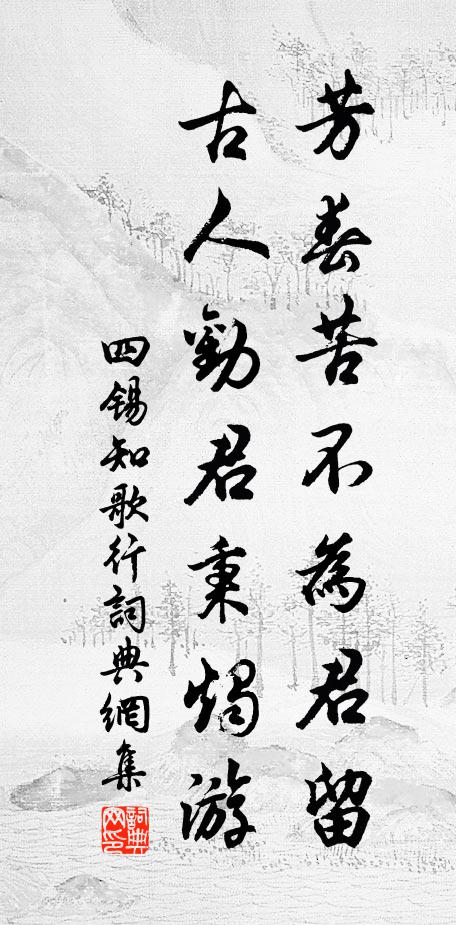 芳春苦不為君留
古人勸君秉燭游
四锡知歌行詞典網集
詞典網印